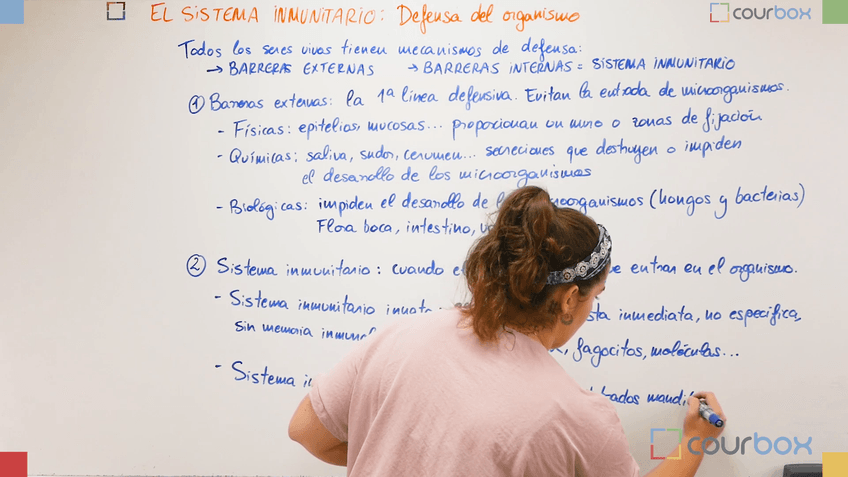 EL SISTEMA INMUNITARIO: Defensa del organismo
courbox
Todos los seres vivos tienen mecanismos de defensa:
→ BARRERAS EXTERNAS → BARRERAS INTERNAS = SISTEMA INMUNITARIO
① Barreras externas: la 1ª línea defensiva. Evitan la entrada de microorganismos.
- Físicas: epitelios, mucosas... proporcionan un muro o zonas de fijación
- Químicas: saliva, sudor, cerumen... secreciones que destruyen o impiden
el desarollo de los microorganismos
- Biológicas: impiden el desarollo de (hongos y bacterias)
Flora boca, intestino,
② Sistema inmunitario: cuando entrar en el organismo.
- Sistema inmunitario inmediata, no específica,
sin memoria fagocitos, moléculas...
- Sistema
courbox